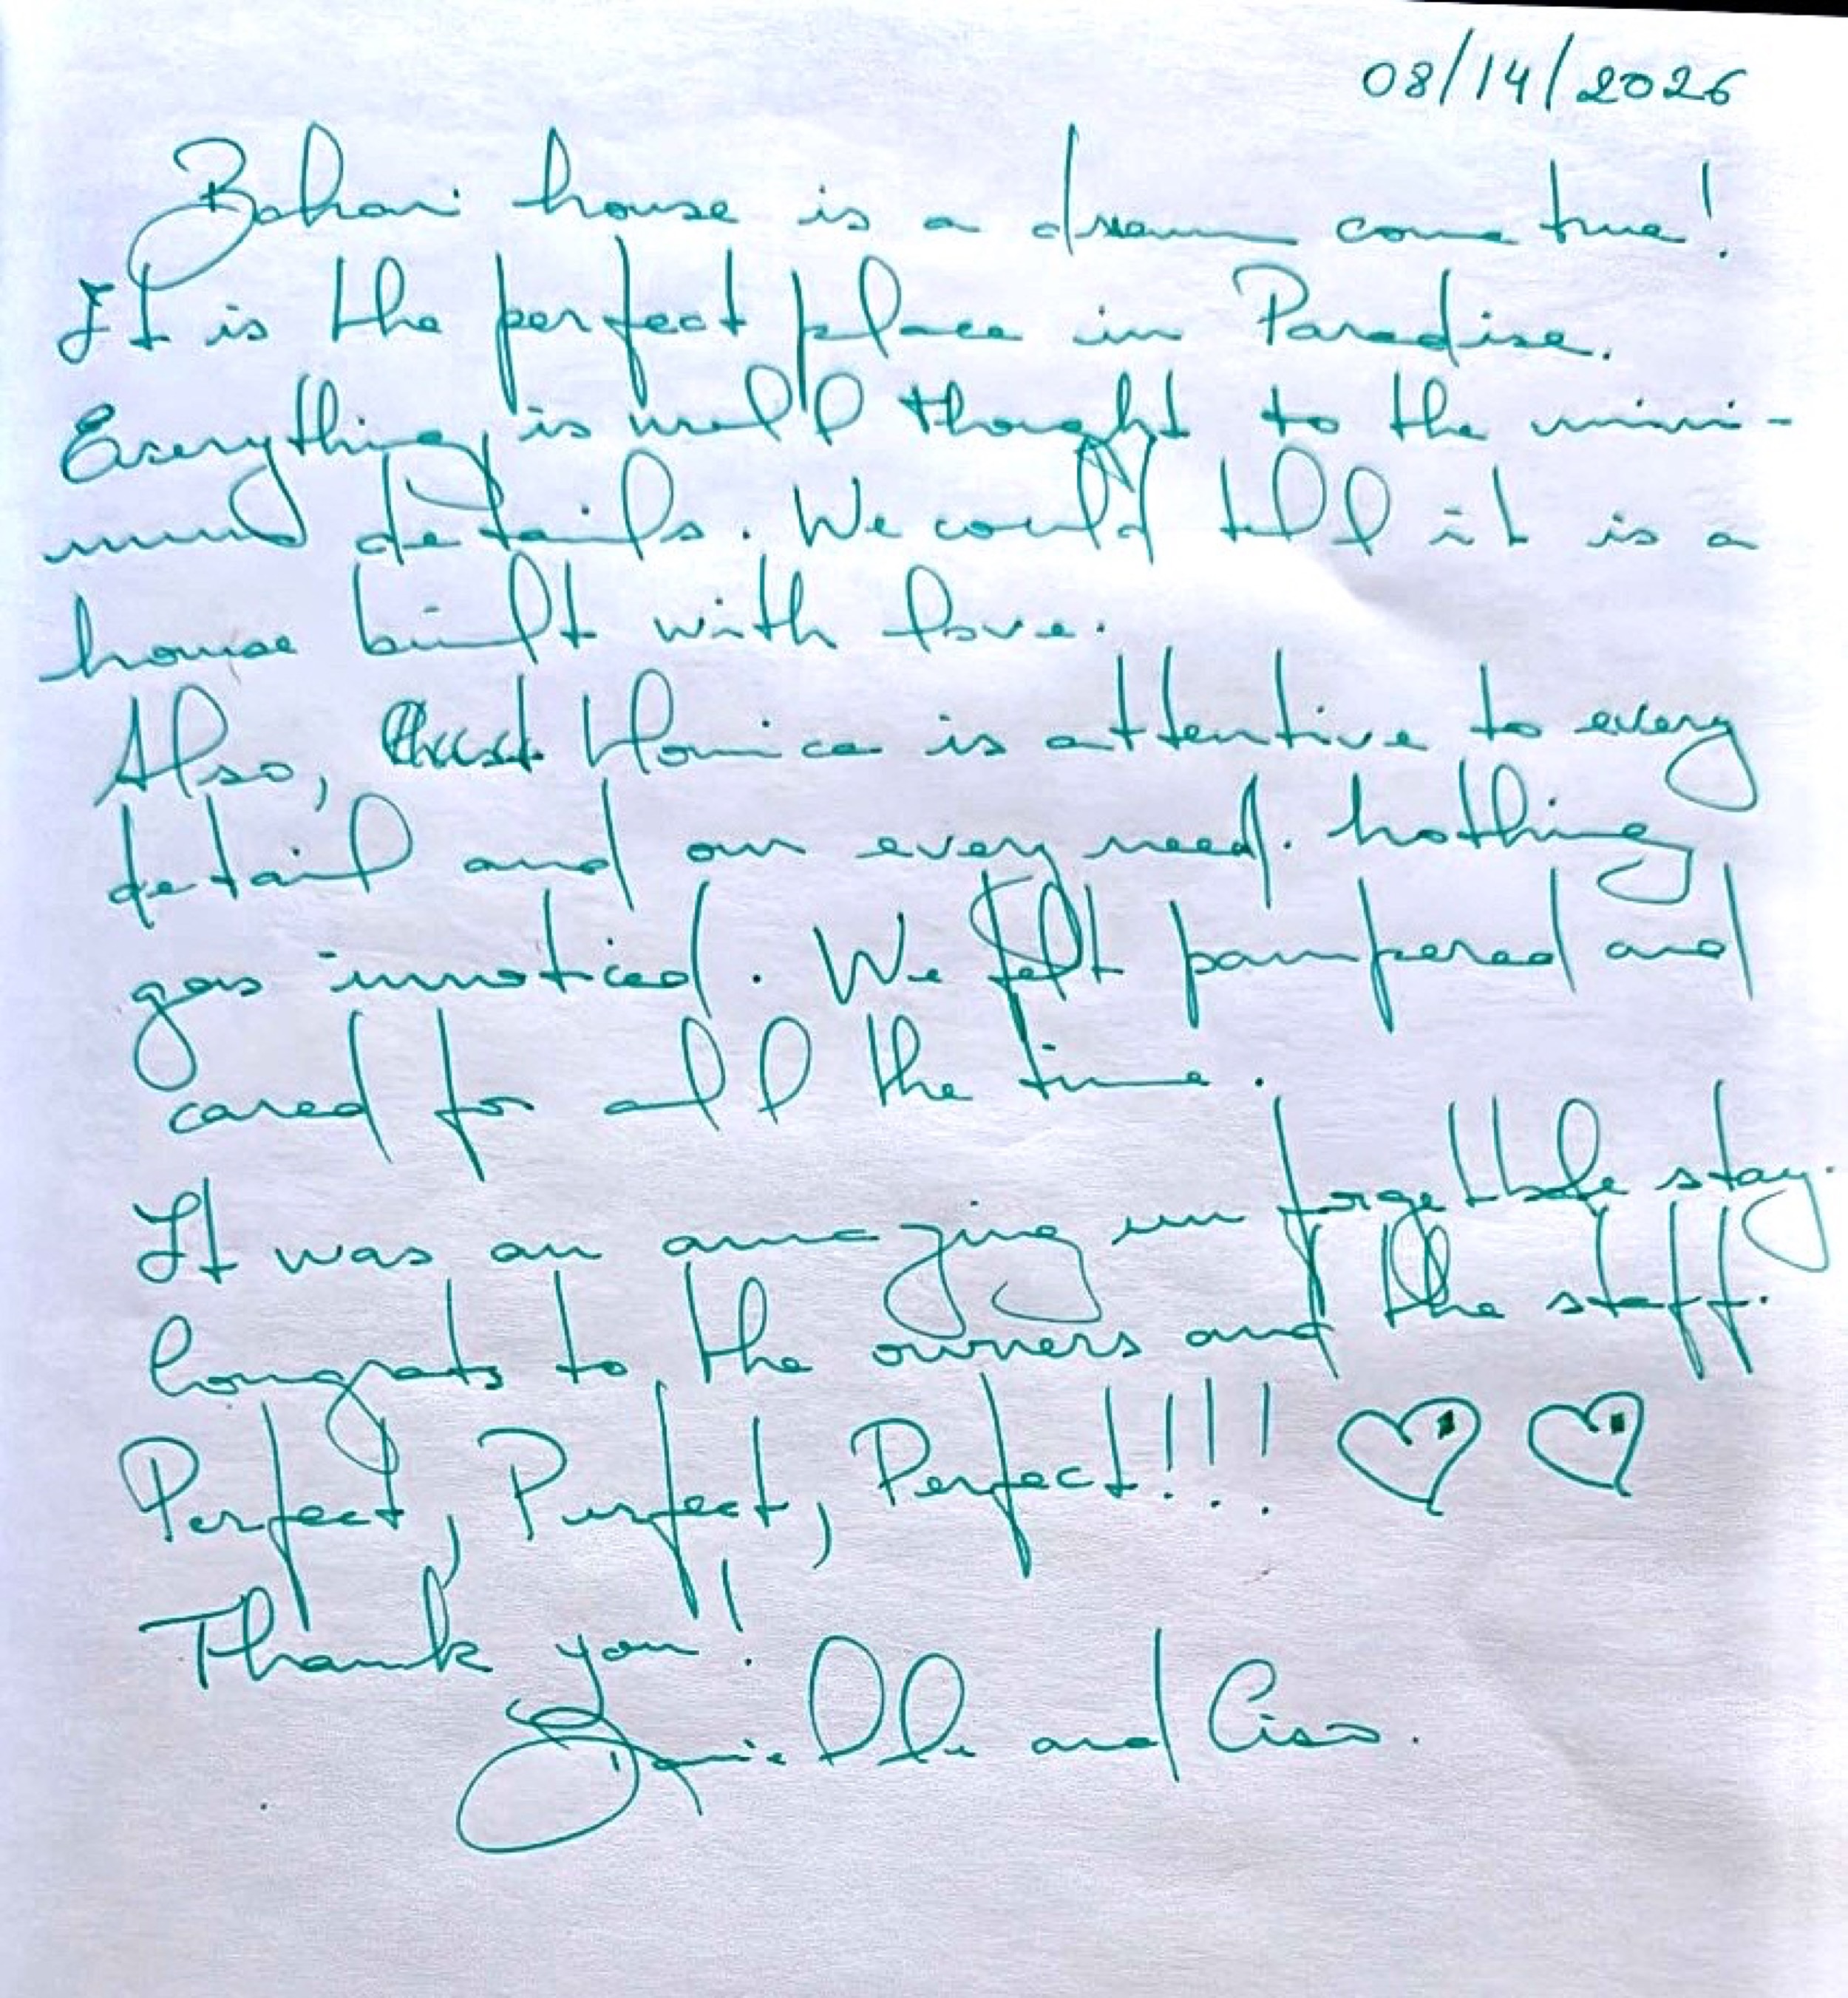 08/14/2026
Bahari house is a dream come true!
It is the perfect place in Paradise.
Everything is well thought to the mini-
mum details. We could tell it is a
house built with love.
Also, Monica is attentive to every
detail and our every need. Nothing
goes unnoticed. We felt pampered and
cared for all the time.
It was an amazing unforgettable stay.
Congrats to the owners and the staff.
Perfect, Perfect, Perfect!!!
Thank you!
Danielle and Ciso.